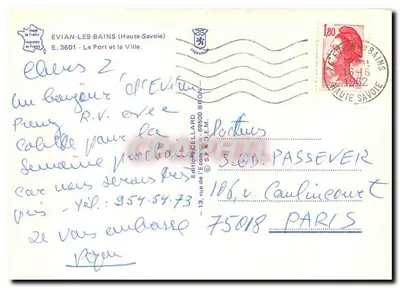 EVIAN-LES-BAINS (Haute-Savoie)
E. 3601 - Le Port et la Ville.
Chers 2
un bonjour d'Evian
Prenez R.V. avec
pour la
semaine prochaine
car nous serons très
pris - Tél: 954-54-73
Je vous embrasse
Editions CELLARD
13, rue de 69500 BRON
1,80
EVIAN LES BAINS
16-6
1982
HAUTE SAVOIE
Docteurs
PASSEVER
106, r. Caulincourt
75018 PARIS